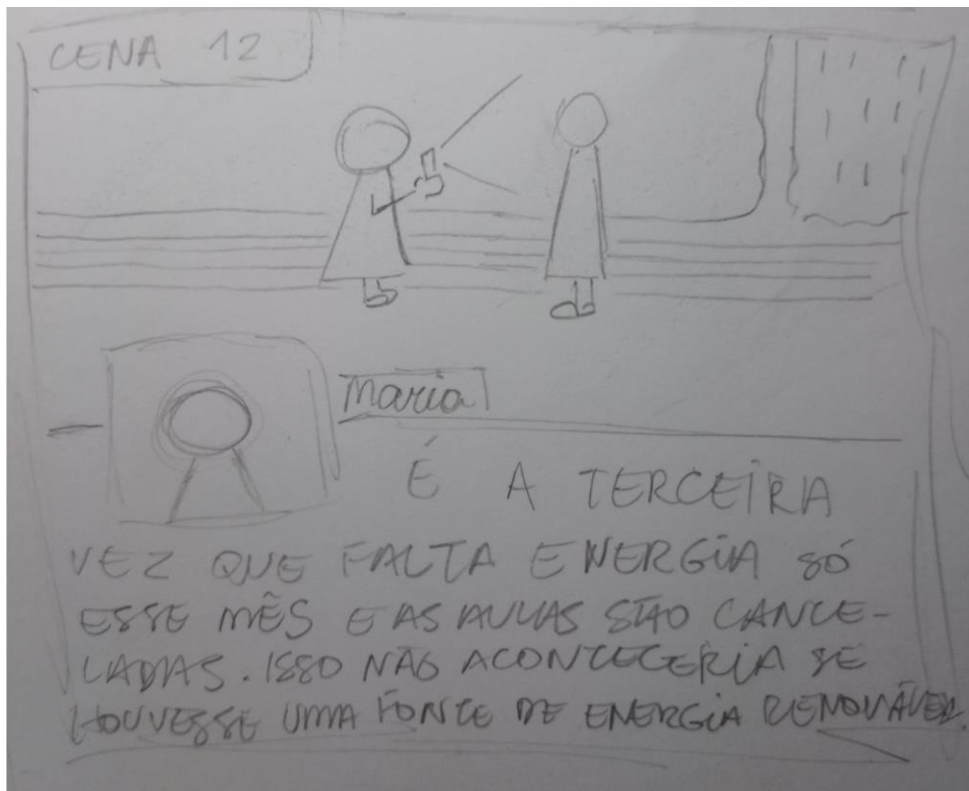 CENA 12
Maria
É A TERCEIRA
VEZ QUE FALTA ENERGIA SÓ
ESSE MÊS E AS AULAS SÃO CANCE-
LADAS. ISSO NÃO ACONTECERIA SE
HOUVESSE UMA FONTE DE ENERGIA RENOVÁVEL